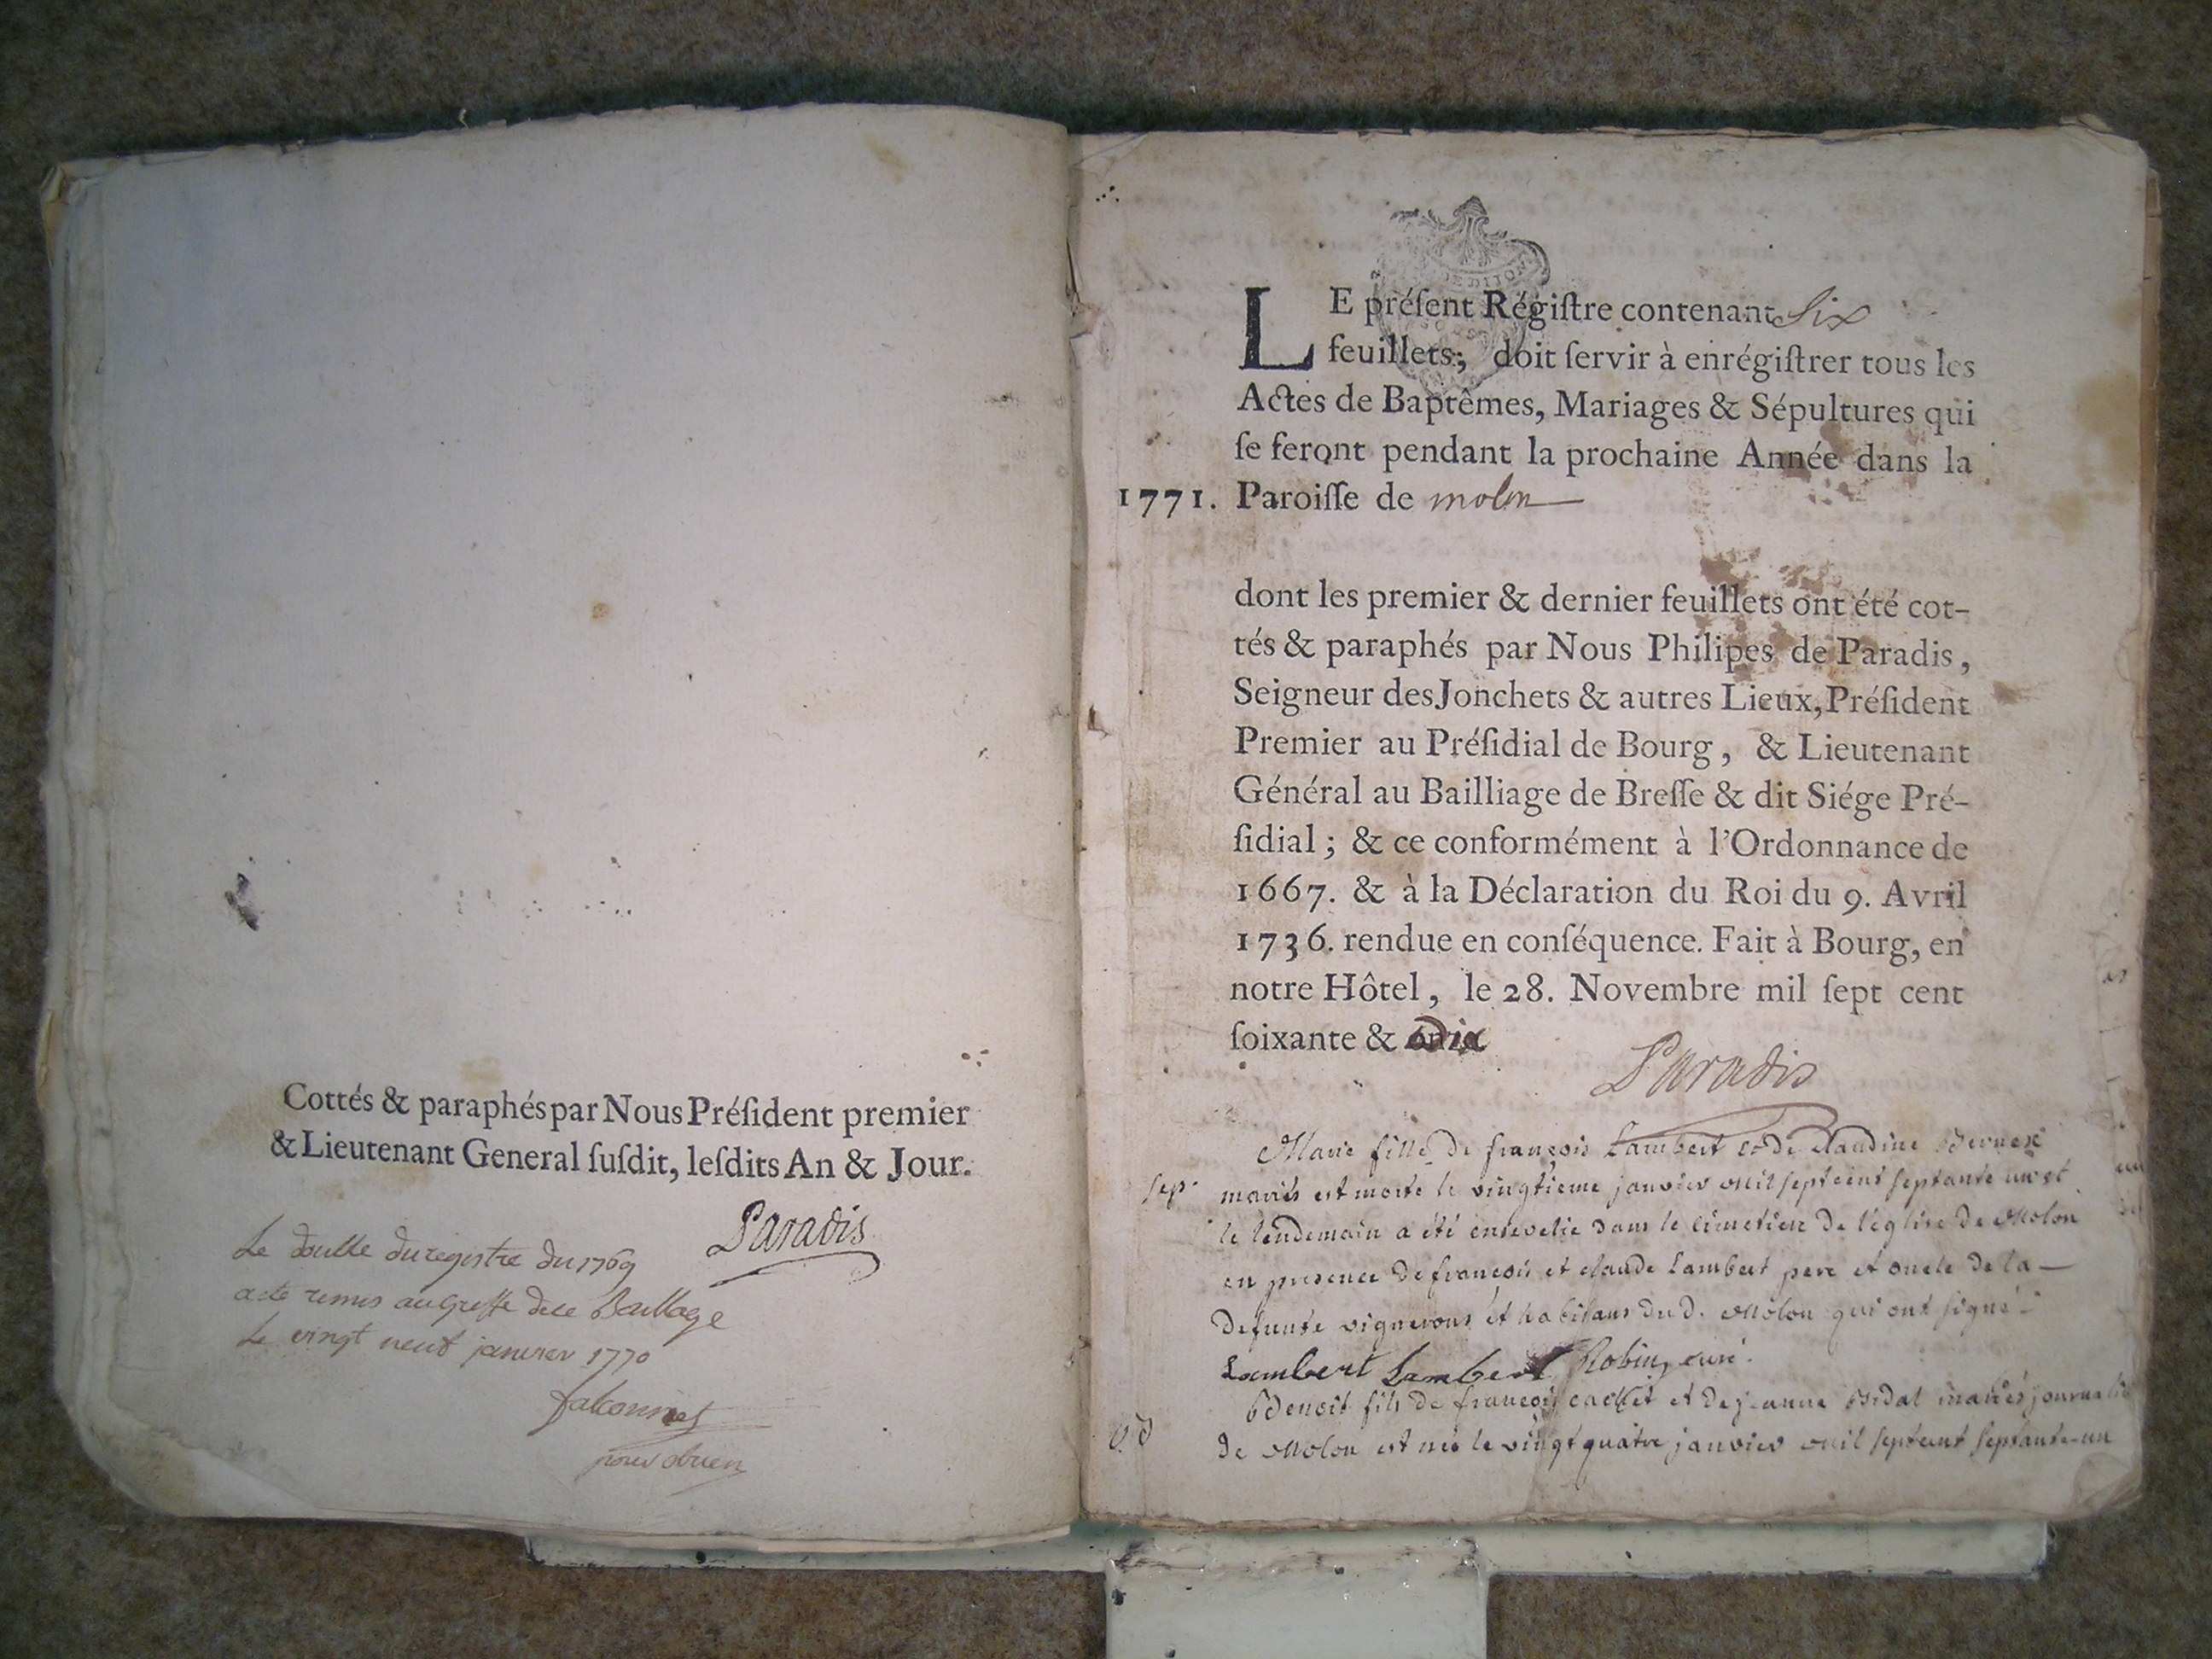 Cottés & paraphés par Nous Préſident premier
& Lieutenant General ſuſdit, leſdits An & Jour.
Paradis
Le double du registre du 1769
a ete remis au greffe de ce Baillage
Le vingt neuf janvier 1770
falconnet
DE DIJON
LE préſent Régiſtre contenant Six
feuillets, doit ſervir à enrégiſtrer tous les
Actes de Baptêmes, Mariages & Sépultures qui
ſe feront pendant la prochaine Année dans la
1771. Paroiſſe de molon
dont les premier & dernier feuillets ont été cot-
tés & paraphés par Nous Philipes de Paradis,
Seigneur des Jonchets & autres Lieux, Préſident
Premier au Préſidial de Bourg, & Lieutenant
Général au Bailliage de Breſſe & dit Siége Pré-
ſidial ; & ce conformément à l'Ordonnance de
1667. & à la Déclaration du Roi du 9. Avril
1736. rendue en conſéquence. Fait à Bourg, en
notre Hôtel, le 28. Novembre mil ſept cent
ſoixante & dix
Paradis
Marie fille de françois Lambert et de claudine
sep. mariés est morte le vingtieme janvier mil sept cent septante un et
le lendemain a été ensevelie dans le cimetiere de l'église de Molon
en presence de françois et claude Lambert pere et oncle de la
defunte vignerons et habitans dud. Molon qui ont signé
Lambert Lambert Robin, curé.
Benoit fils de françois et de jeanne mariés
de Molon est né le vingt quatre janvier mil sept cent septante-un